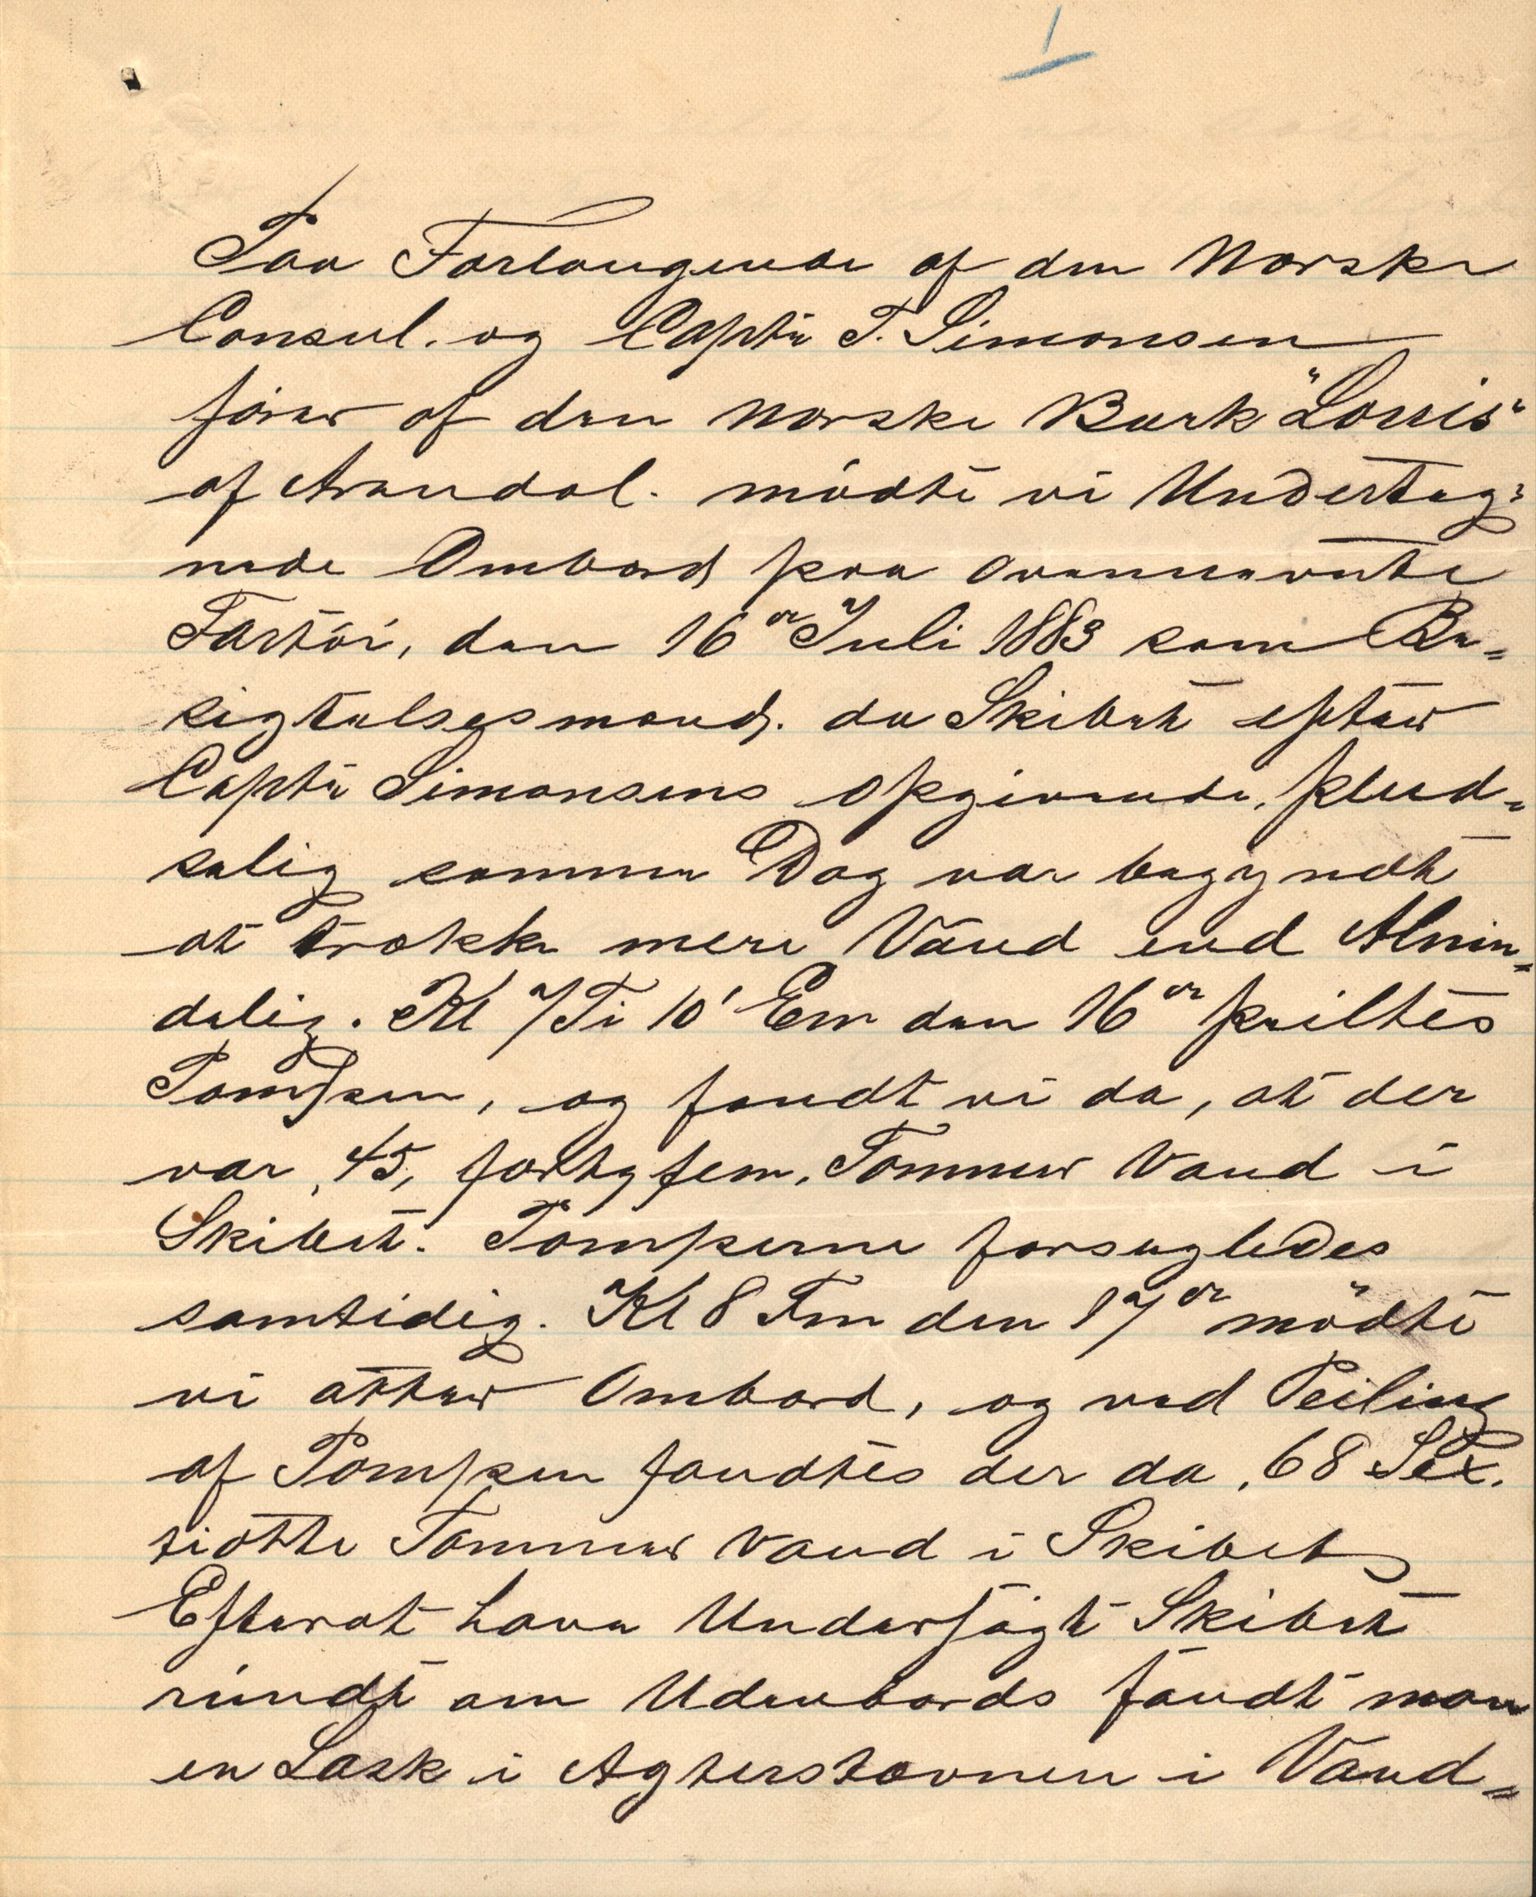 1
Paa Forlangende af den Norske
Consul. og Captn T. Simonsen
förer af den Norske Bark "Louis"
af Arendal. mödte vi Underteg=
nede Ombord paa ovennævnte
Fartöi, den 16de Juli 1883 som Be=
sigtelsesmænd. da Skibet efter
Captn Simonsens opgivende, plud=
selig samme Dag var begyndt
at trække mere Vand end Almin=
delig. Kl 7 Ti 10' Em den 16de peiltes
Pompen, og fandt vi da, at der
var, 45, fortyfem, Tommer Vand i
Skibet. Pomperne forsegledes
samtidig. Kl 8 Fm den 17de mödte
vi atter Ombord, og ved Peiling
af Pompen fandtes der da, 68 Sex.
tiotte Tommer Vand i Skibet
Efterat have Undersögt Skibet
rundt om Udenbords fandt man
en Læsk i Agterstævnen i Vand=